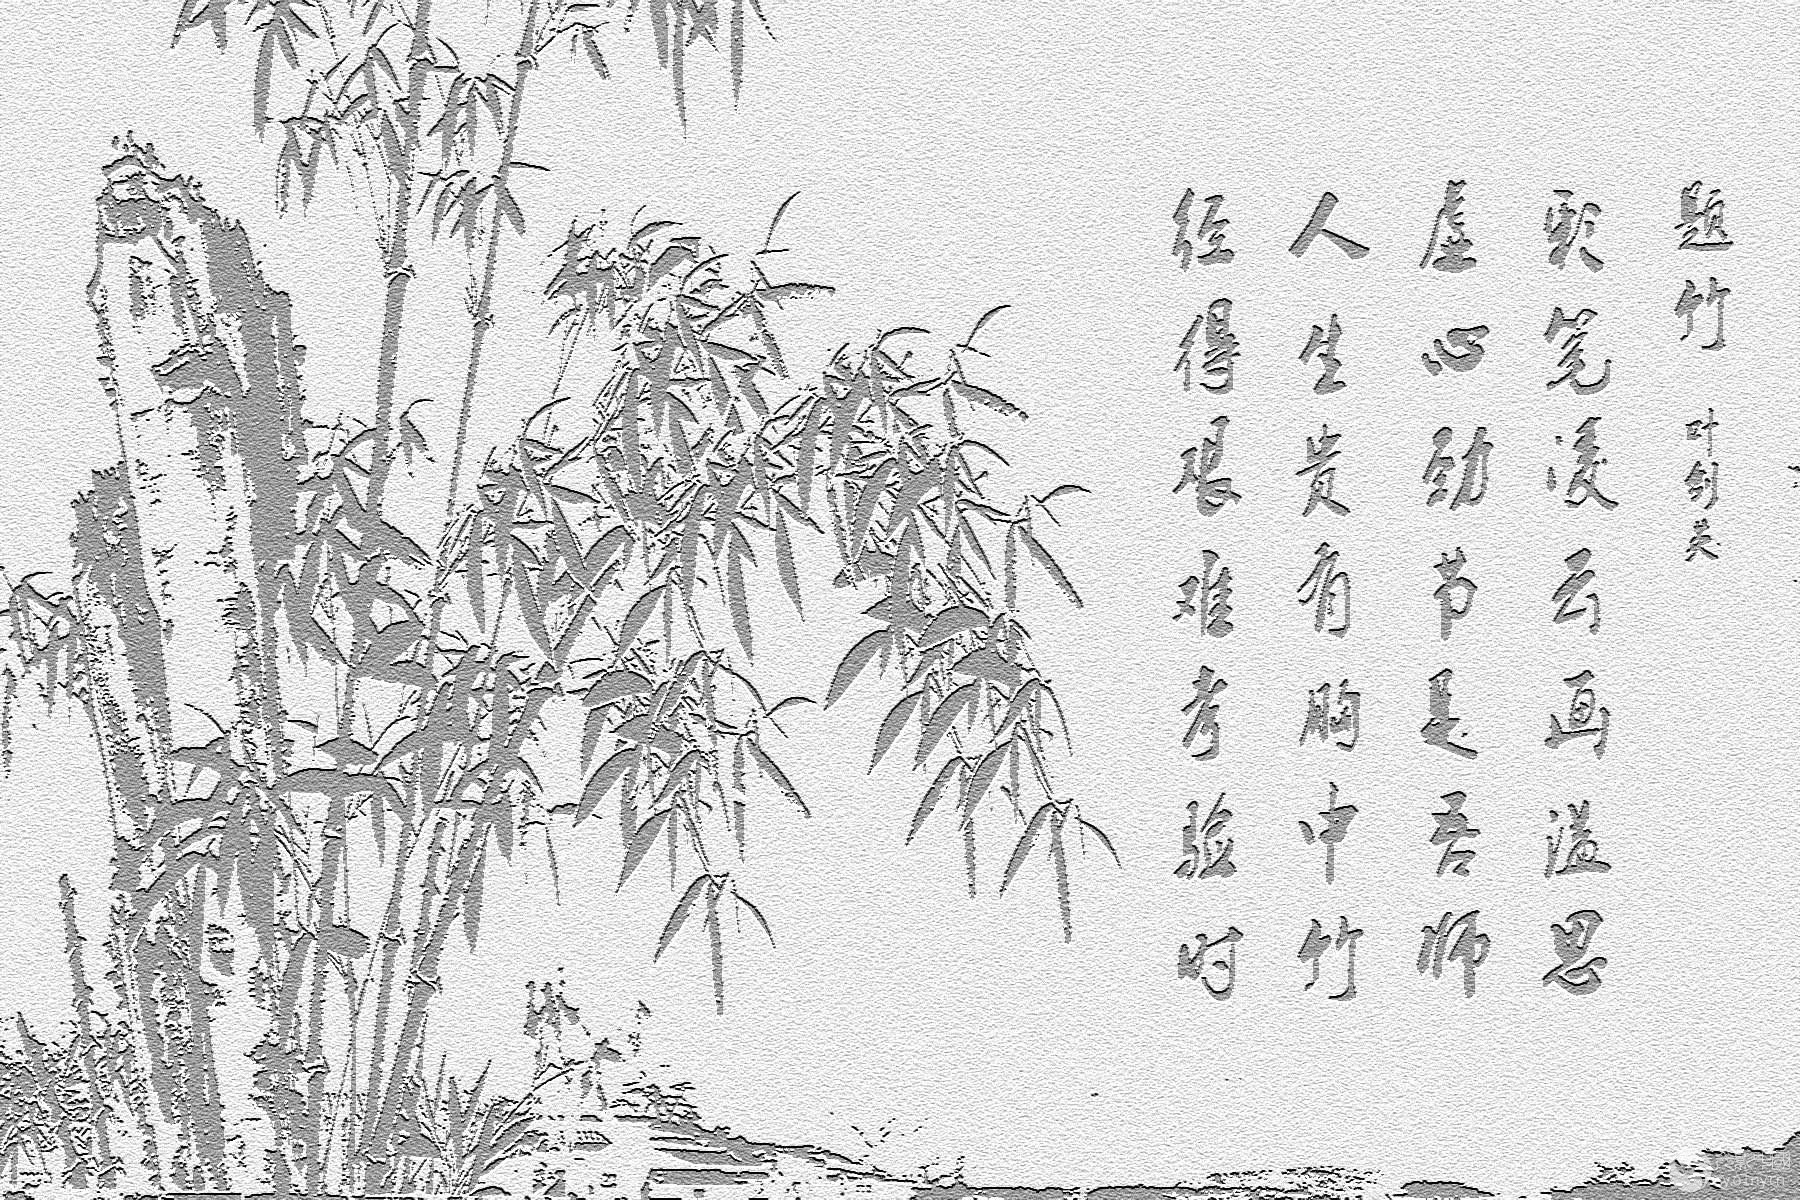 题竹 叶剑英
彩笔凌云画溢思
虚心劲节是吾师
人生贵有胸中竹
经得艰难考验时